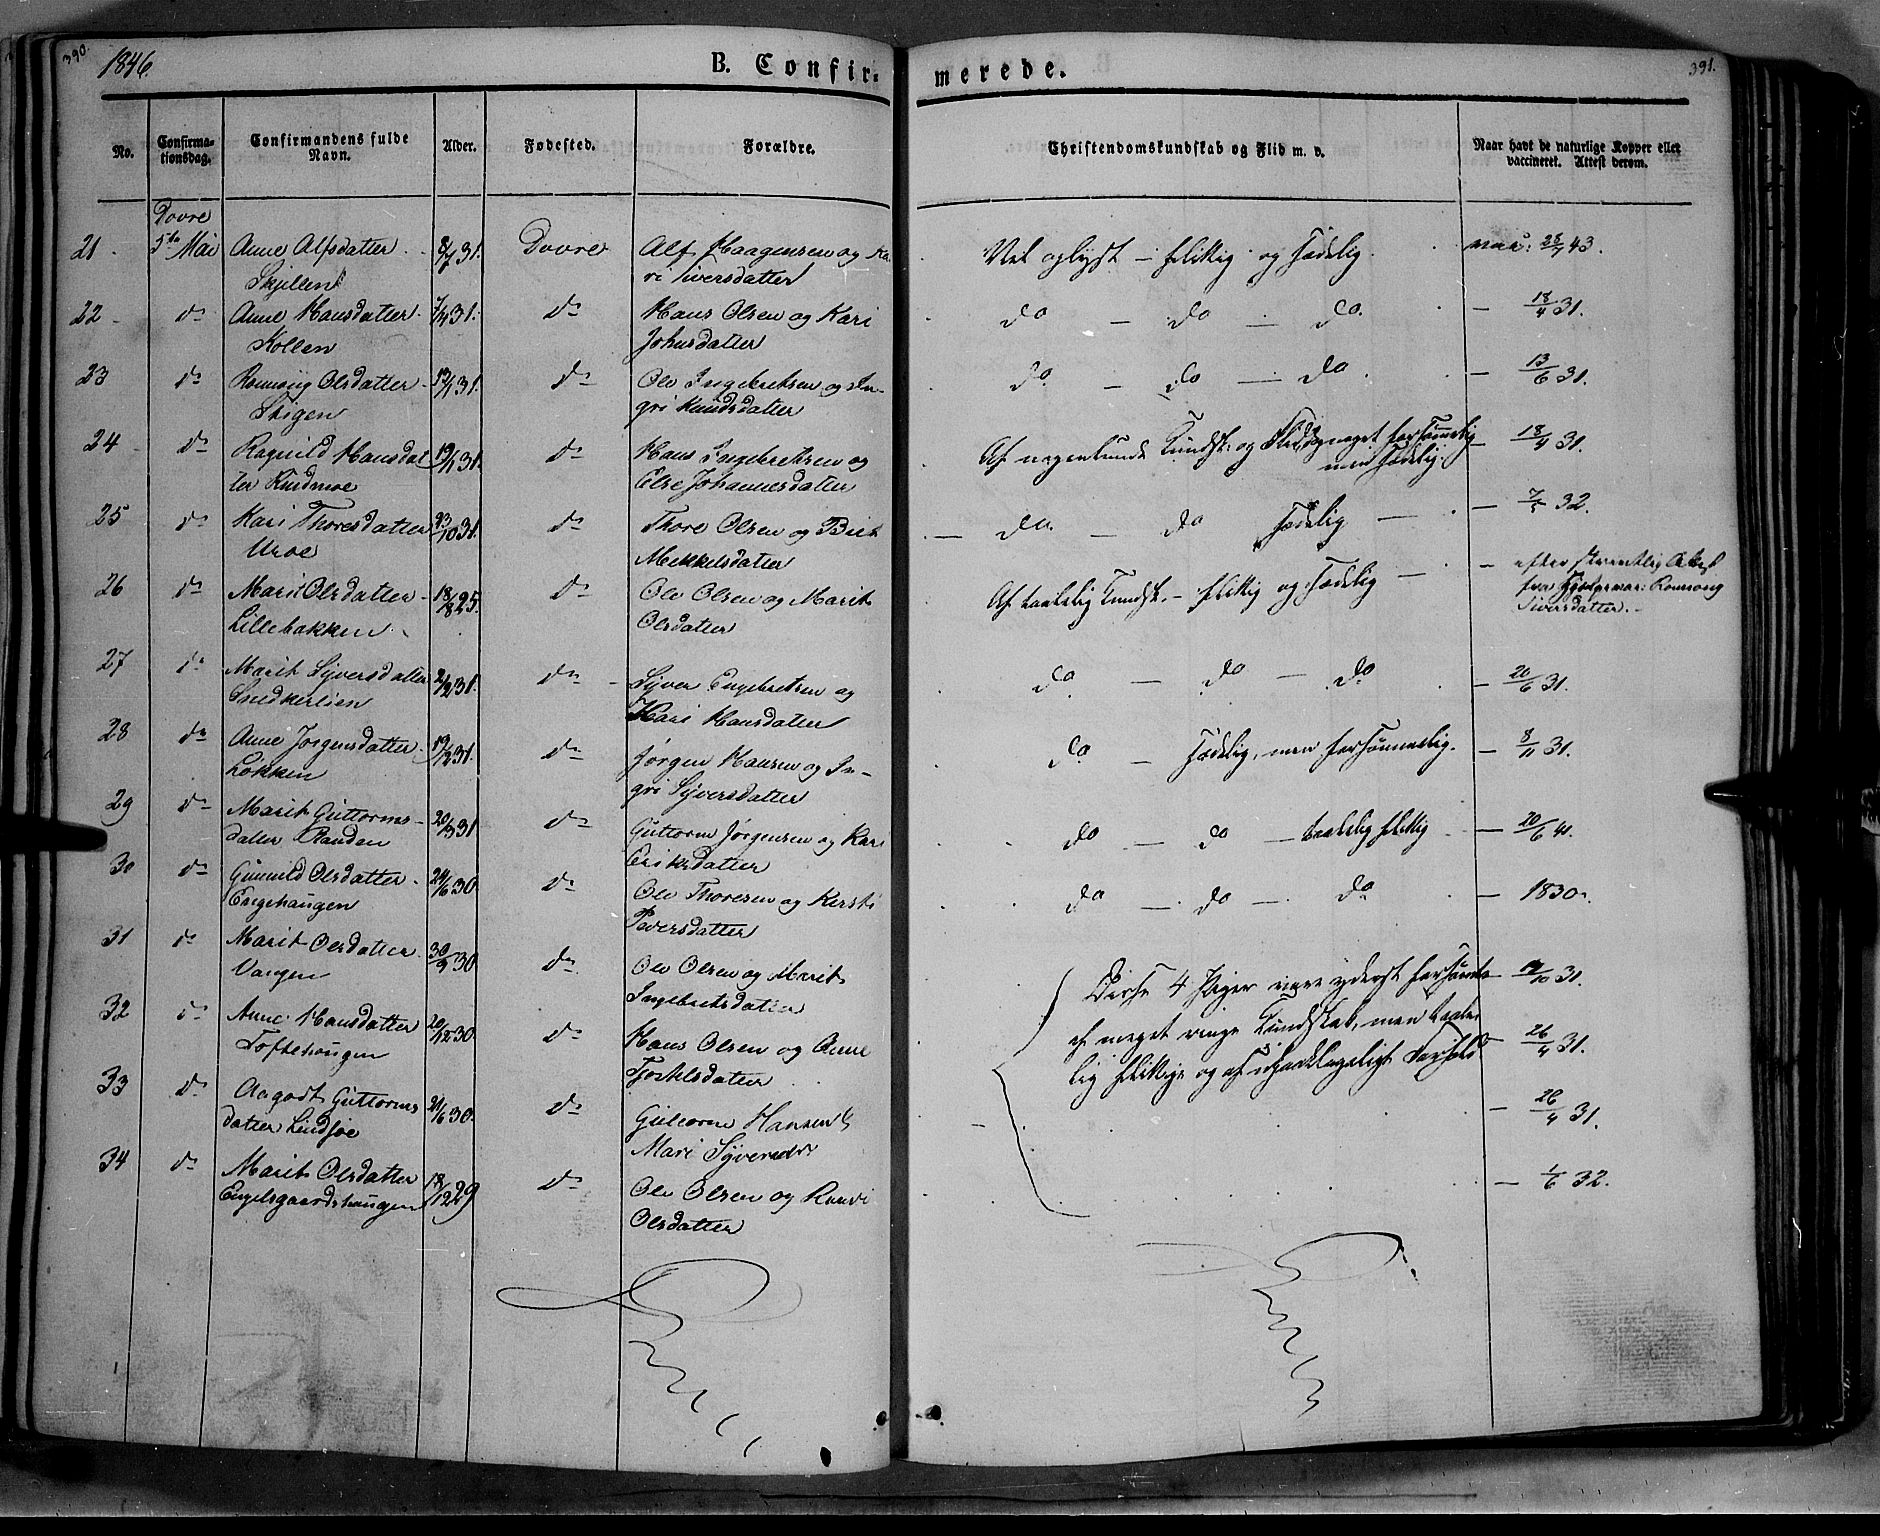 390.
1846.
B. Confir-
merede.
391.
No.
Confirma-
tionsdag.
Confirmandens fulde
Navn.
Alder.
Fødested.
Forældre.
Christendomskundskab og Flid m. v.
Naar havt de naturlige Kopper eller
vaccineret. Attest derom.
Dovre
21. 5te Mai Anne Alfsdatter 8/7 31. Dovre Alf Haagensen og Ka- Vel oplyst – flittig og sædelig. vac: 28/7 43.
Skjellen ri Siversdatter
22 do Anne Hansdatter 7/4 31. do Hans Olsen og Kari do – do – do. – 18/4 31.
Kollen Johnsdatter
23 do Rønnoug Olsdatter 19/4 31. do Ole Ingebretsen og In- do – do – do. – 13/6 31.
Stigen gri Knudsdatter
24 do Ragnild Hansdat 19/1 31. do Hans Ingebretsen og Af nogenlunde Kundsk: og Flid noget forsømmelig – 18/4 31.
ter Rindmoe Else Johannesdatter men sædelig.
25 do Kari Thoresdatter 23/10 31. do Thore Olsen og Brit – do. – do sædelig – – 7/5 32.
Uroe Mekkelsdatter
26 do Marit Olsdatter 18/8 25. do Ole Olsen og Marit Af taalelig Kundsk. – flittig og sædelig – – efter skrivtlig Attest
Lillebakken Olsdatter fra Hjelpevac: Rønnoug
Siversdatter.
27 do Marit Syversdatter 2/2 31. do Syver Engebretsen og do – do – do – 20/6 31.
Snedkerlien Kari Hansdatter
28 do Anne Jørgensdatter 19/2 31. do Jørgen Hansen og In- do – sædelig, men forsømmelig. – 8/11 31.
Løkken gri Syversdatter
29 do Marit Guttorms- 20/3 31 do Guttorm Jørgensen og Kari do – do – taalelig flittig – 20/6 41.
datter Randen Eriksdatter
30 do Gunnild Olsdatter 24/6 30 do Ole Thoresen og Kersti do – do – do – 1830.
Engehaugen Paversdatter
31 do Marit Olsdatter 30/9 30 do Ole Olsen og Marit Disse 4 Piger vare yderst forsømte – 31.
Vangen Ingebretsdatter
32 do Anne Hansdatter 20/12 30. do Hans Olsen og Anne af meget ringe Kundskab, men taale- 26/4 31.
Toftehaugen Tostelsdatter lig flittige og af upaaklageligt Forhold
33 do Aagodt Guttorms 21/6 30. do Guttorm Hansen & – 26/4 31.
datter Lindsøe Mari Syversdr
34 do Marit Olsdatter 18/12 29 do Ole Olsen og Rønvi – 1/6 32.
Engelsgaardshaugen Olsdatter